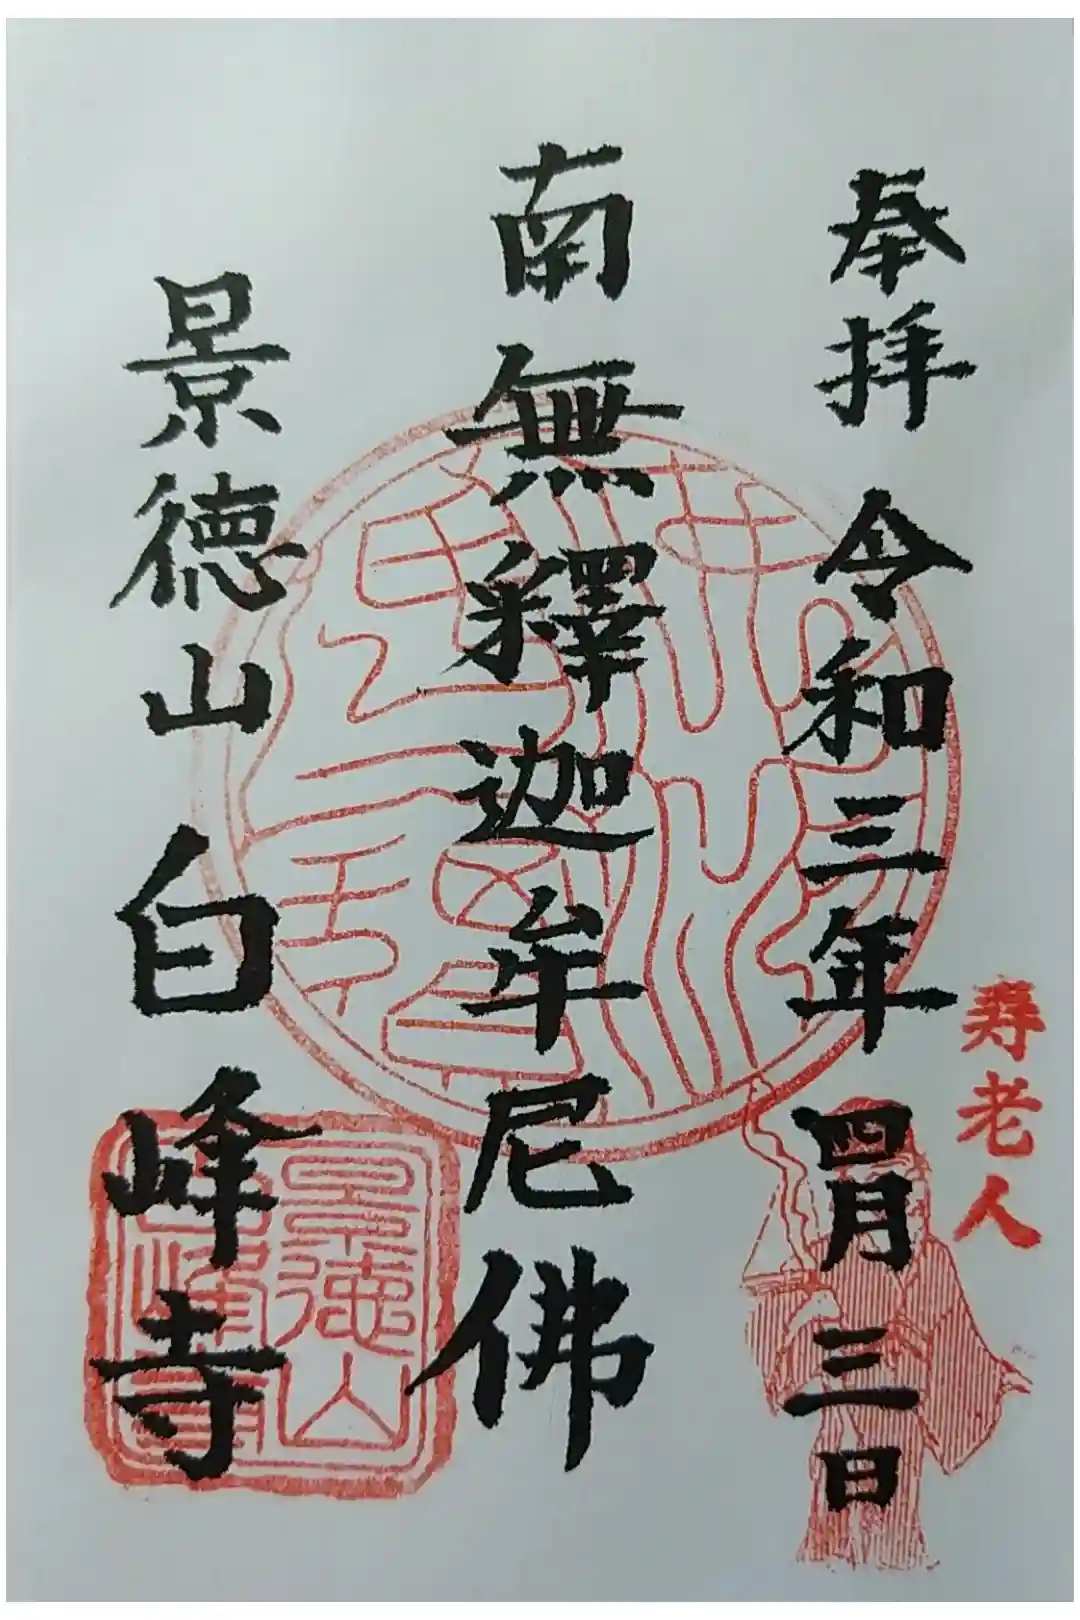 奉拝 令和三年 四月三日
寿老人
南無釋迦牟尼佛
景徳山白峰寺
景徳山
白峰寺